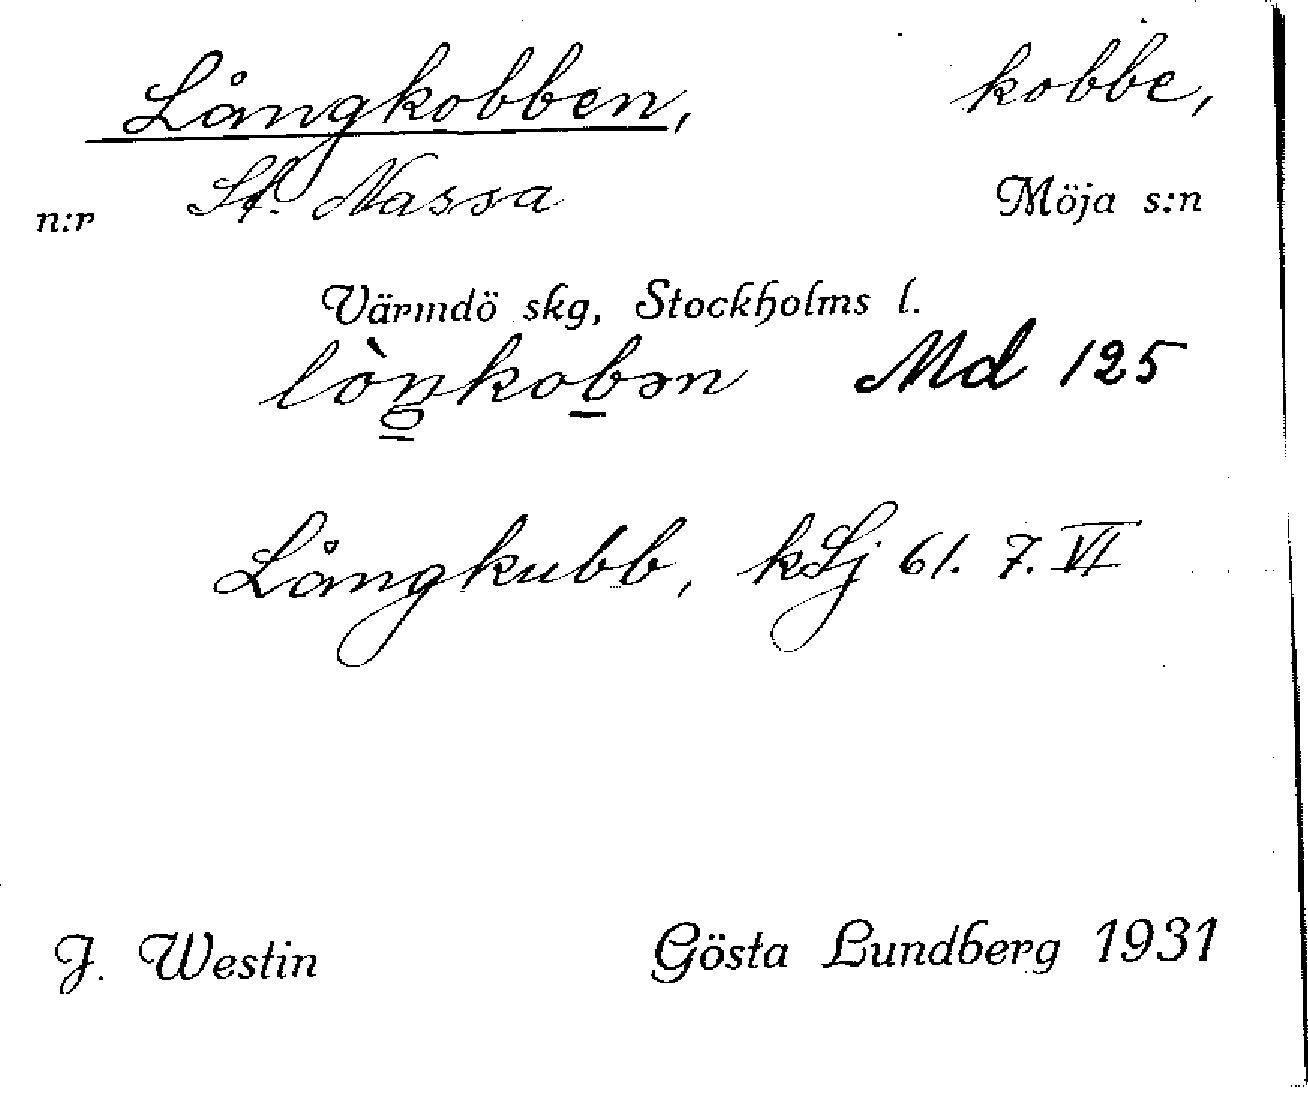 Långkobben, kobbe,
n:r St. Nassa Möja s:n
Värmdö skg, Stockholms l.
lòŋkobən Md 125
Långkubb, kLj 61. 7. VI
J. Westin Gösta Lundberg 1931